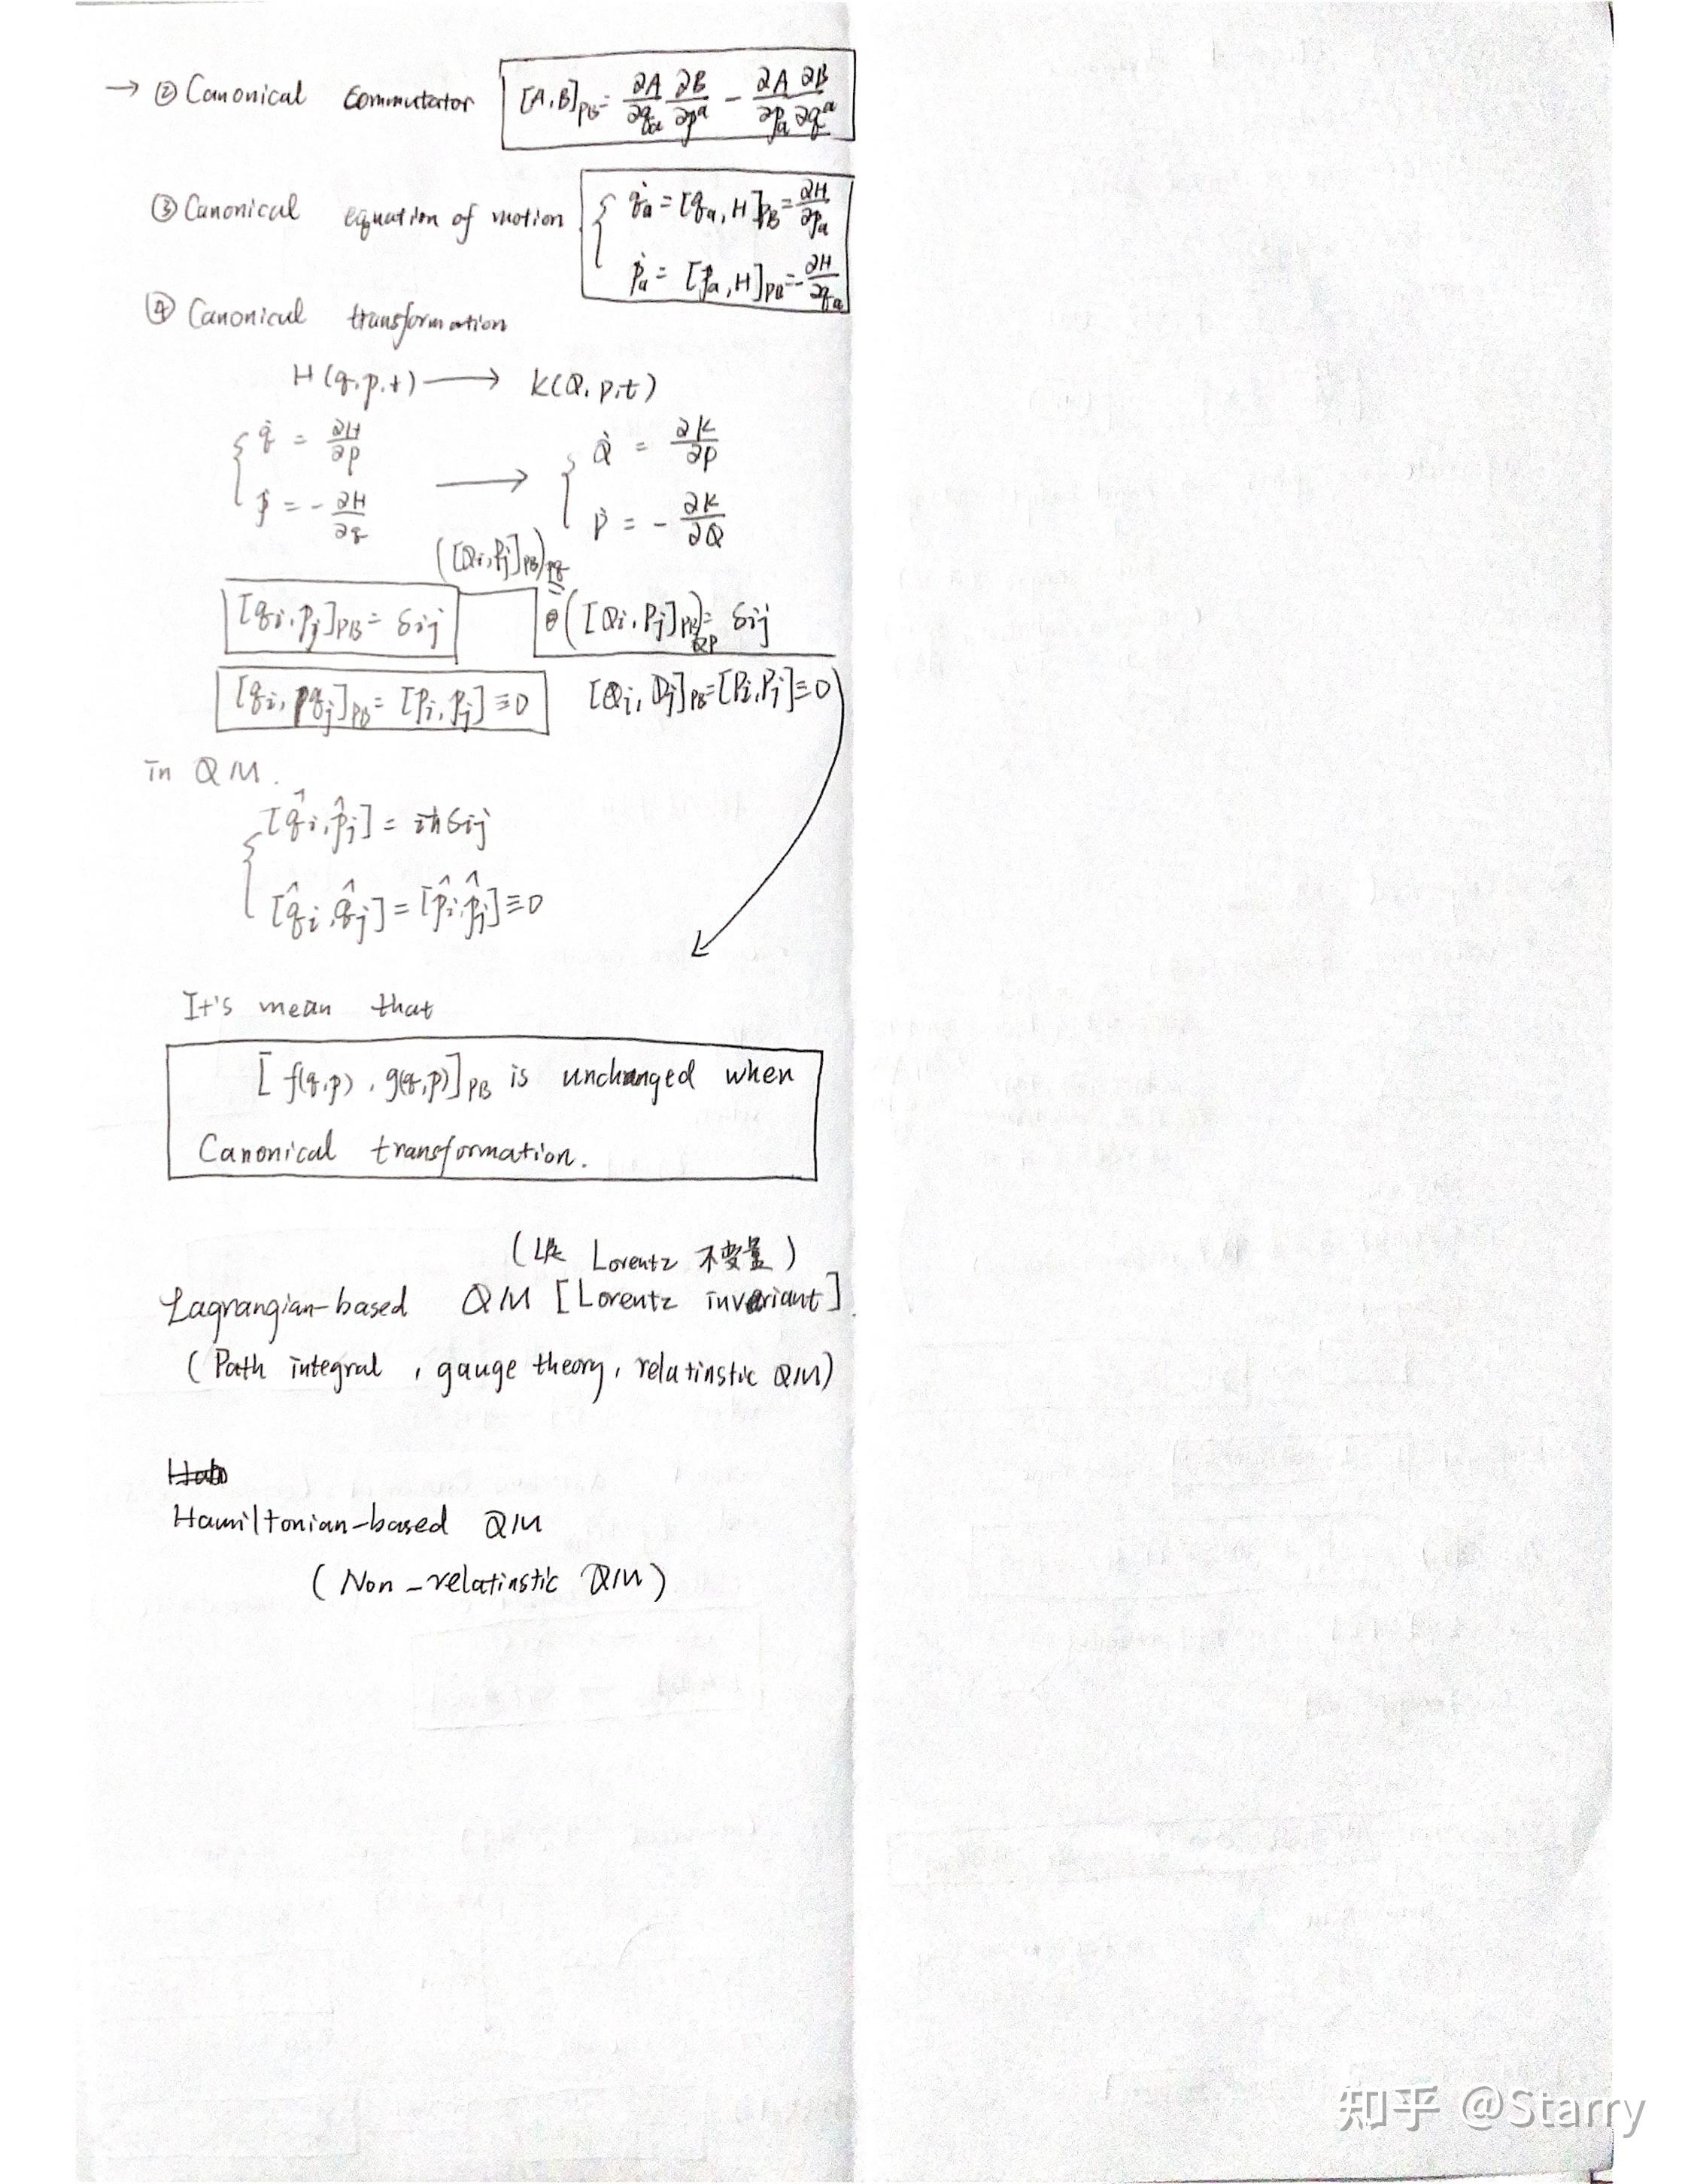 → ② Canonical Commutator [A,B]_PB = ∂A/∂q_a ∂B/∂p^a − ∂A/∂p_a ∂B/∂q^a
③ Canonical equation of motion { q̇_a = [q_a, H]_PB = ∂H/∂p_a
ṗ_a = [p_a, H]_PB = −∂H/∂q_a
④ Canonical transformation
H(q,p,t) ⟶ K(Q,P,t)
{ q̇ = ∂H/∂p ⟶ { Q̇ = ∂K/∂P
ṗ = −∂H/∂q Ṗ = −∂K/∂Q
([Q_i,P_j]_PB)_pq
[q_i,p_j]_PB = δ_ij = ([Q_i,P_j]_PB)_QP = δ_ij
[q_i,q_j]_PB = [p_i,p_j] ≡ 0 [Q_i, ]_PB = [P_i,P_j] ≡ 0
in QM.
{ [q̂_i,p̂_j] = iħδ_ij
[q̂_i,q̂_j] = [p̂_i,p̂_j] ≡ 0
It's mean that
[f(q,p), g(q,p)]_PB is unchanged when
Canonical transformation.
( Lorentz 不变量)
Lagrangian-based QM [Lorentz invariant].
(Path integral, gauge theory, relatinstic QM)
Hamiltonian-based QM
(Non-relatinstic QM)
知乎 @Starry